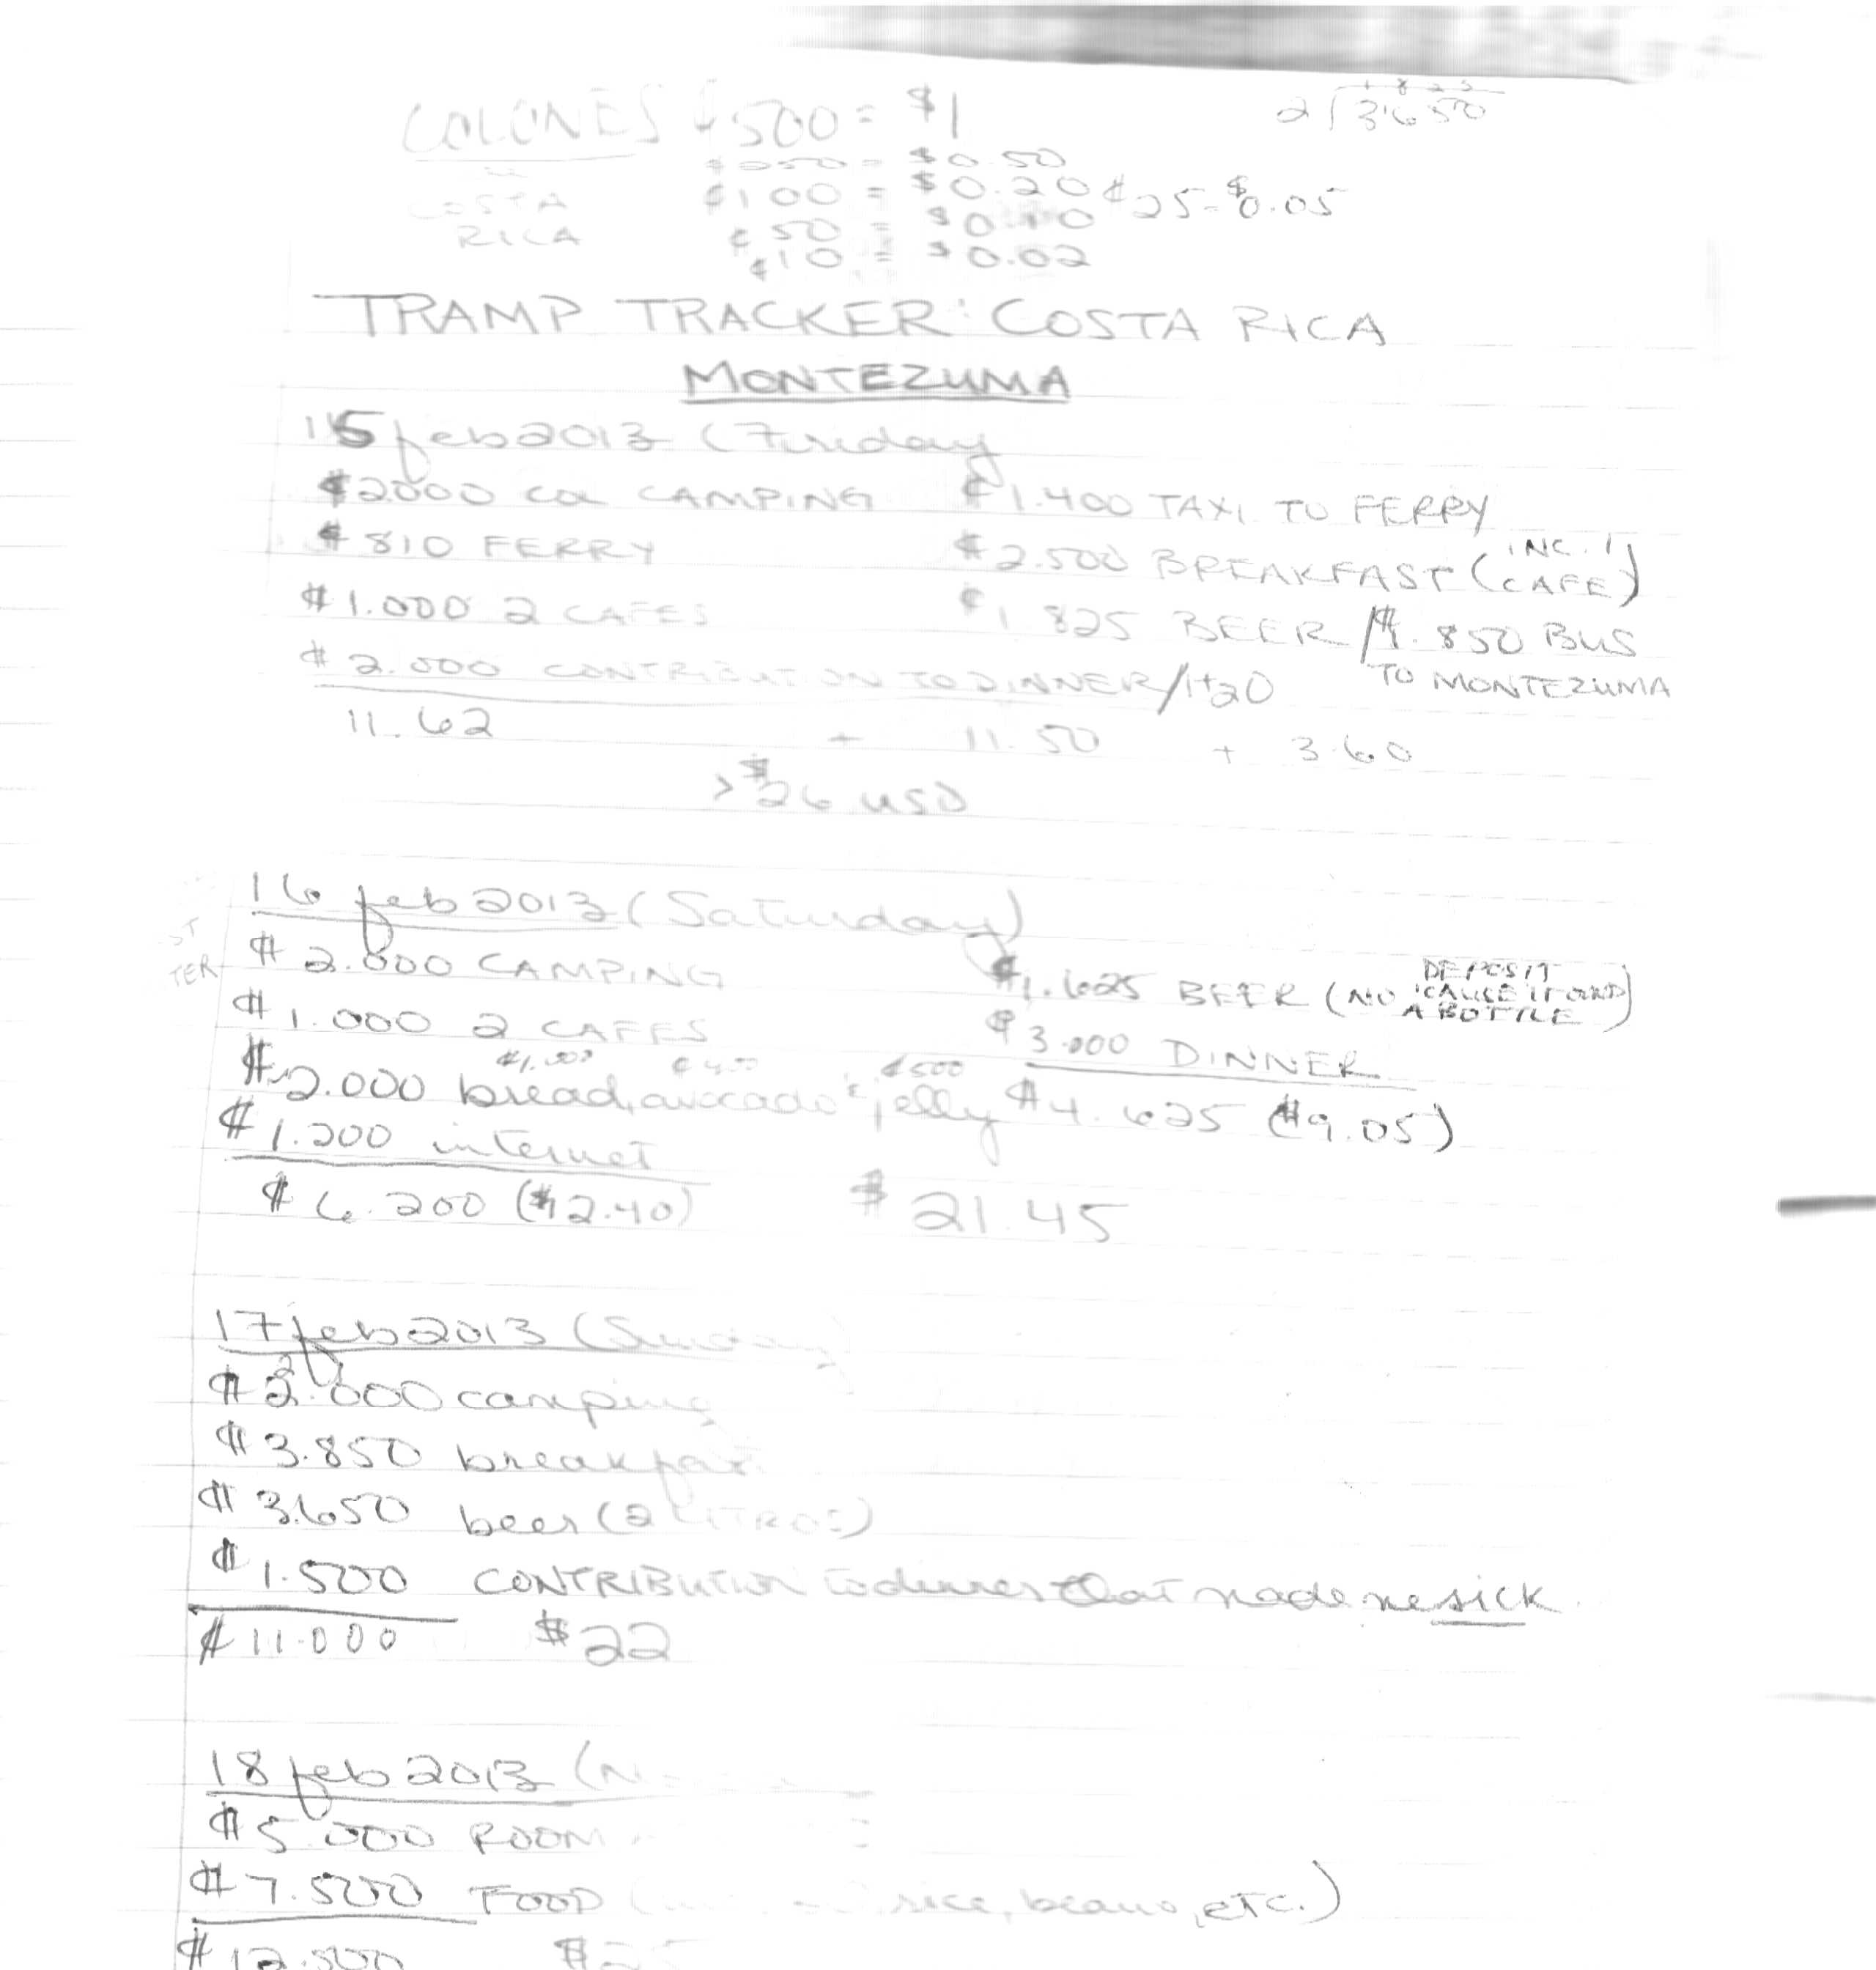 COLONES ₡500 = $1
2 ) 3650
1 8 2 5
= $0.50
COSTA ₡100 = $0.20 ₡25 = $0.05
RICA ₡50 = $0.10
₡10 = $0.02
TRAMP TRACKER: COSTA RICA
MONTEZUMA
15 feb 2013 (Friday
₡2000 COL CAMPING ₡1.400 TAXI TO FERRY
₡810 FERRY ₡2.500 BREAKFAST (INC. 1 CAFE)
₡1.000 2 CAFES ₡1.825 BEER / ₡1.850 BUS
₡2.000 CONTRIBUTION TO DINNER/H20 TO MONTEZUMA
11.62 + 11.50 + 3.60
> $26 USD
16 feb 2013 (Saturday)
₡2.000 CAMPING ₡1.625 BEER (NO DEPOSIT 'CAUSE I FOUND A BOTTLE)
₡1.000 2 CAFES ₡3.000 DINNER
₡1.000 ₡500
₡2.000 bread, avocado & jelly ₡4.625 ($9.05)
₡1.200 internet
₡6.200 ($12.40) $21.45
17 feb 2013 (Sunday)
₡2.000 camping
₡3.850 breakfast
₡3.650 beer (2 LITROS)
₡1.500 CONTRIBUTION to dinner that made me sick.
₡11.000 $22
18 feb 2013
₡5.000 ROOM
₡7.500 FOOD ( rice, beans, etc.)
₡12.500 $25